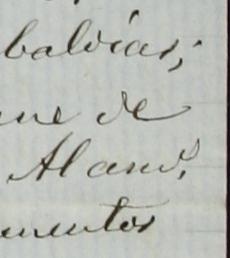 baldías;
ne de
Alamo,
umentos